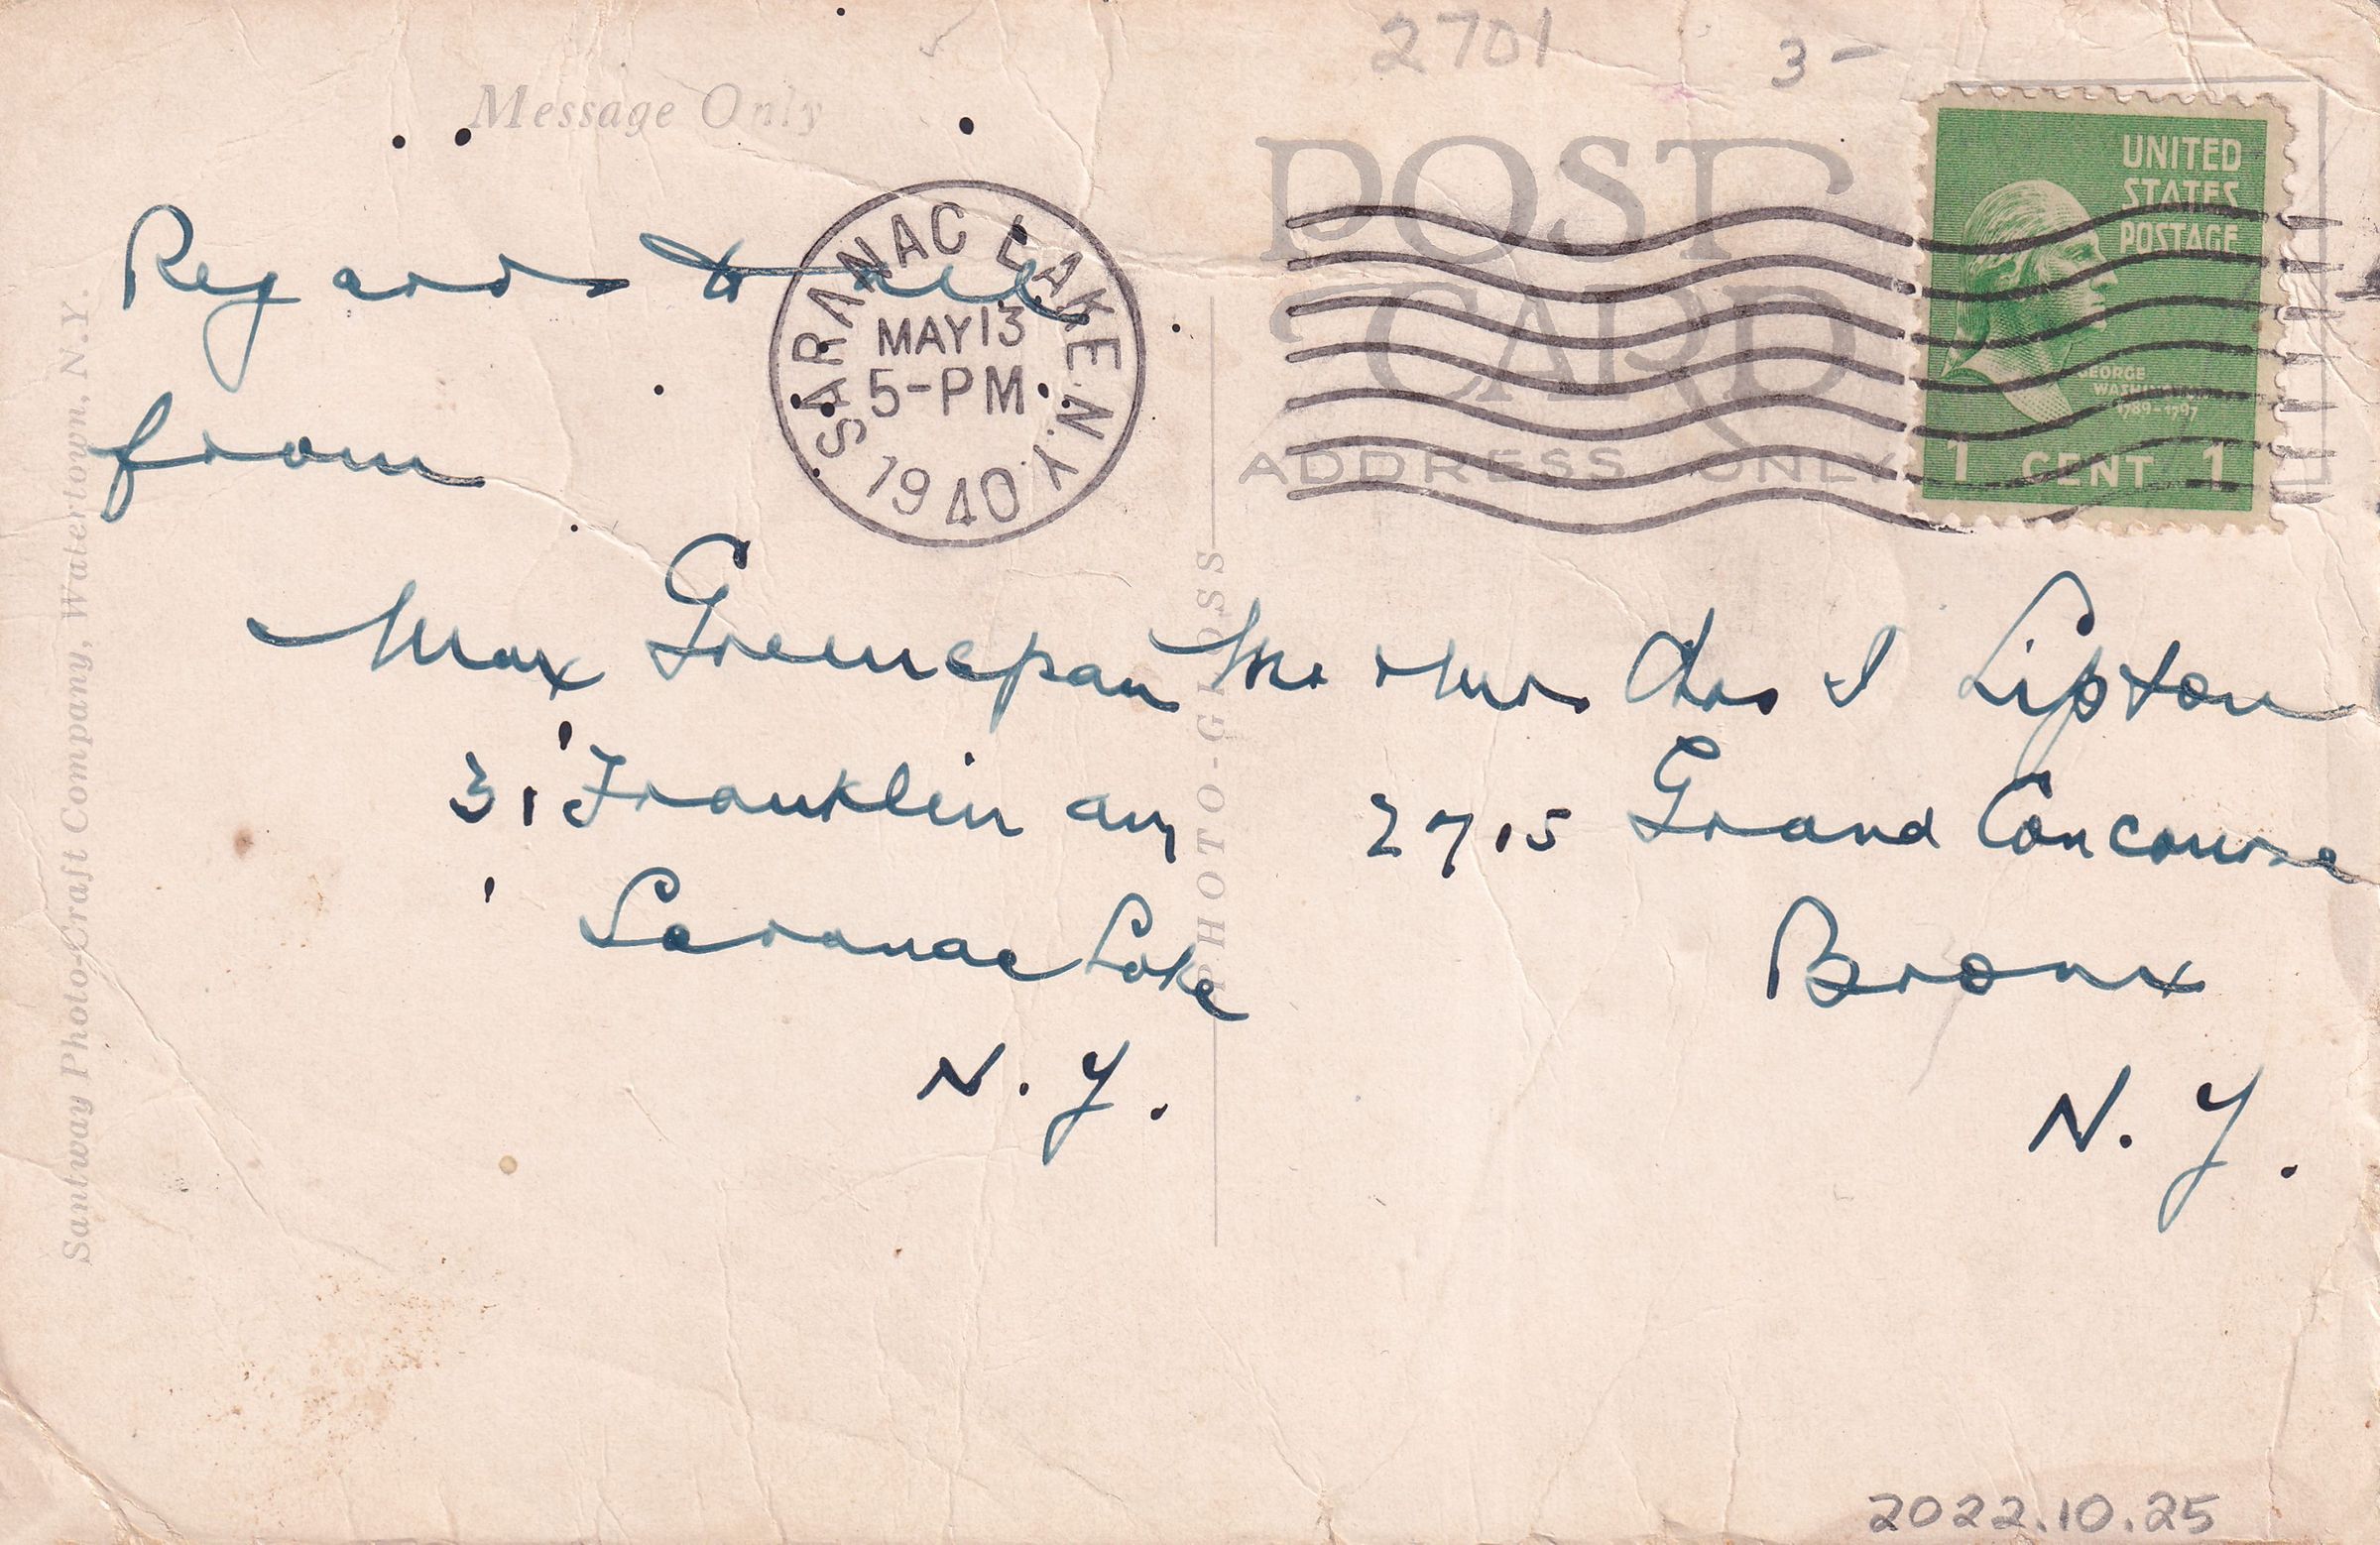 2701
3-
Message Only
POST CARD
ADDRESS ONLY
UNITED
STATES
POSTAGE
GEORGE
WASHINGTON
1789-1797
1 CENT 1
SARANAC LAKE N.Y.
MAY 13
5-PM
1940
Regards to all
from
Max
31 Franklin av
Saranac Lake
N.Y.
Mr & Mrs Chas I Lipton
2715 Grand Concourse
Bronx
N.Y.
PHOTO-GLOSS
Santway Photo-Craft Company, Watertown, N.Y.
2022.10.25